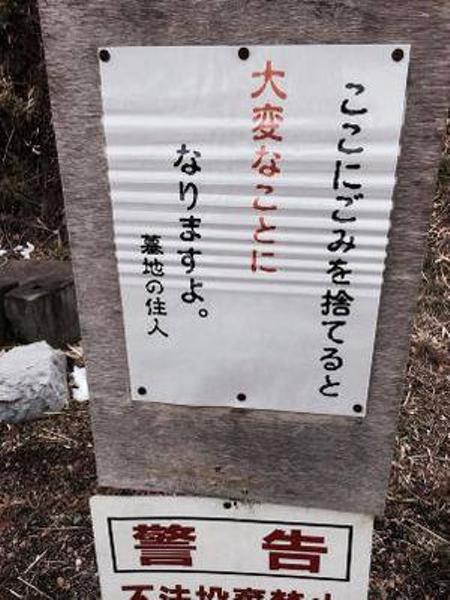 ここにごみを捨てると
大変なことに
なりますよ。
墓地の住人
警告
不法投棄禁止